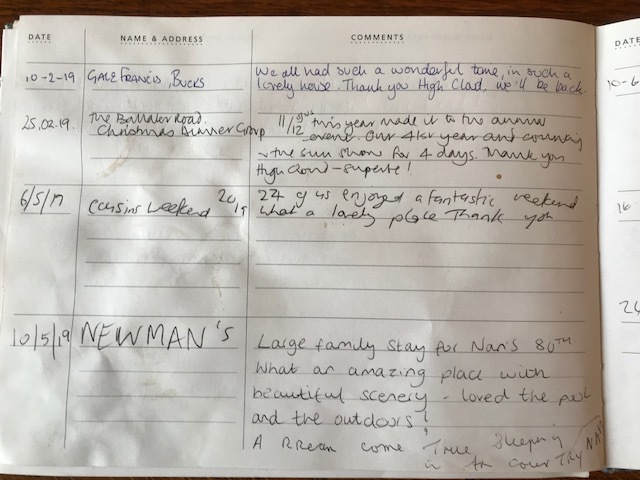 DATE NAME & ADDRESS COMMENTS
10-2-19 GALE FRANCIS, BUCKS We all had such a wonderful time, in such a
lovely house. Thank you High Clad, we'll be back.
25.02.19. The Ballater Road. 11/12 of us this year made it to the annual
Christmas Dinner Group event. Our 41st year and counting
& the sun shone for 4 days. Thank you
High Cloud - superbe!
6/5/17 cousins weekend 2019 22 of us enjoyed a fantastic weekend
what a lovely place Thank you
10/5/19 NEWMAN'S Large family stay for Nan's 80TH
What an amazing place with
beautiful scenery - loved the pool
and the outdoors!
A Dream come True Sleeping
in the country NAN
DATE
10-6
16
24